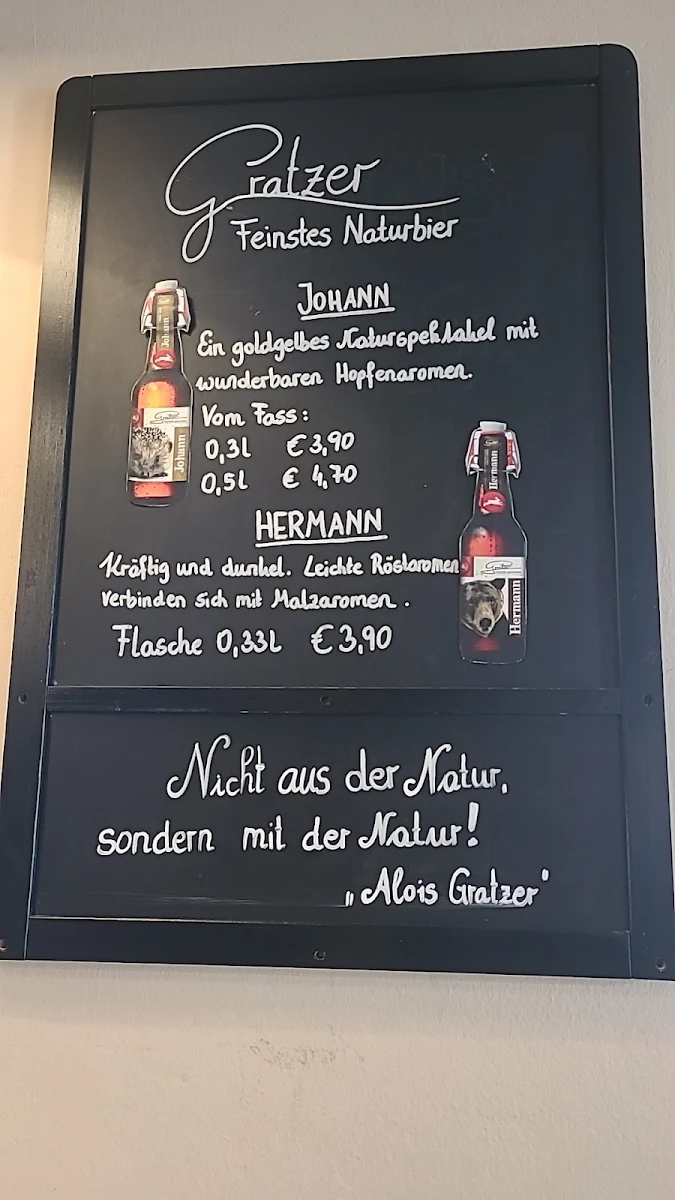 Gratzer
Feinstes Naturbier
JOHANN
Ein goldgelbes Naturspektakel mit
wunderbaren Hopfenaromen.
Vom Fass:
0,3l €3,90
0,5l € 4,70
Johann
Gratzer
Johann
HERMANN
Kräftig und dunkel. Leichte Röstaromen
verbinden sich mit Malzaromen.
Flasche 0,33l €3,90
Hermann
Gratzer
Hermann
Nicht aus der Natur,
sondern mit der Natur!
„Alois Gratzer"